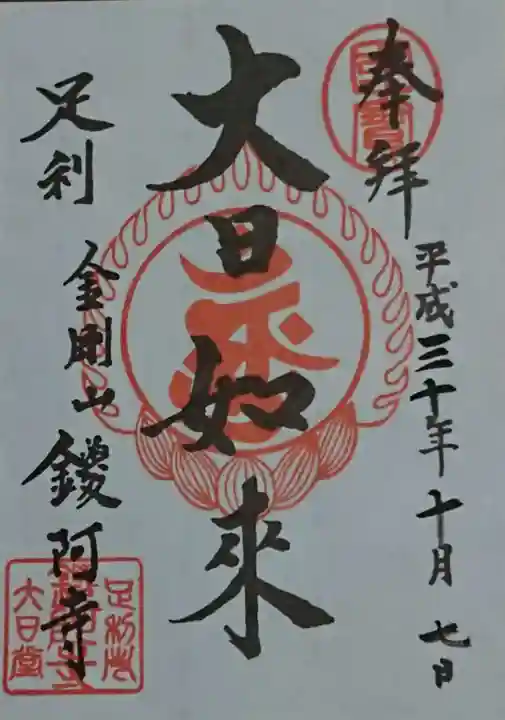 奉拝
平成三十年十月七日
大日如來
足利
金剛山
鑁阿寺
足利市
鑁阿寺
大日堂